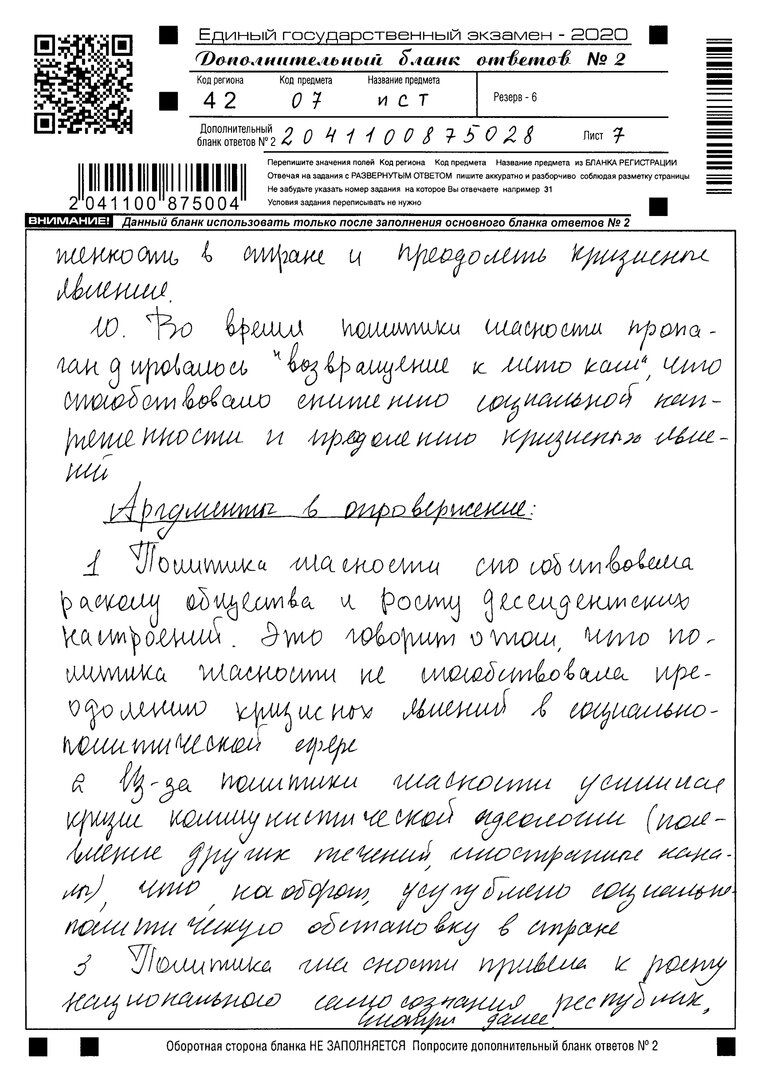 Единый государственный экзамен - 2020
Дополнительный бланк ответов № 2
Код региона Код предмета Название предмета
42 07 ист Резерв - 6
Дополнительный
бланк ответов № 2 2041100875028 Лист 7
Перепишите значения полей Код региона Код предмета Название предмета из БЛАНКА РЕГИСТРАЦИИ
Отвечая на задания с РАЗВЕРНУТЫМ ОТВЕТОМ пишите аккуратно и разборчиво соблюдая разметку страницы
Не забудьте указать номер задания на которое Вы отвечаете например 31
Условия задания переписывать не нужно
2041100 875004
ВНИМАНИЕ! Данный бланк использовать только после заполнения основного бланка ответов № 2
женность в стране и преодолеть кризисные
явление.
10. Во время политики гласности пропа-
гандировалось "возвращение к истокам", что
способствовало снижению социальной нап-
ряженности и предолению кризисных явле-
ний
Аргументы в опровержение:
1 Политика гласности способствовала
расколу общества и росту десидентских
настроений. Это говорит о том, что по-
литика гласности не способствовала пре-
одолению кризисных явлений в социально-
политической сфере
2 Из-за политики гласности усилился
кризис коммунистической идеологии (поя-
вление других течений, иностранные кана-
лы), что, наоборот, усугубляло социально-
политическую обстановку в стране
3 Политика гласности привела к росту
национального самосознания республик,
смотри далее.
Оборотная сторона бланка НЕ ЗАПОЛНЯЕТСЯ Попросите дополнительный бланк ответов № 2